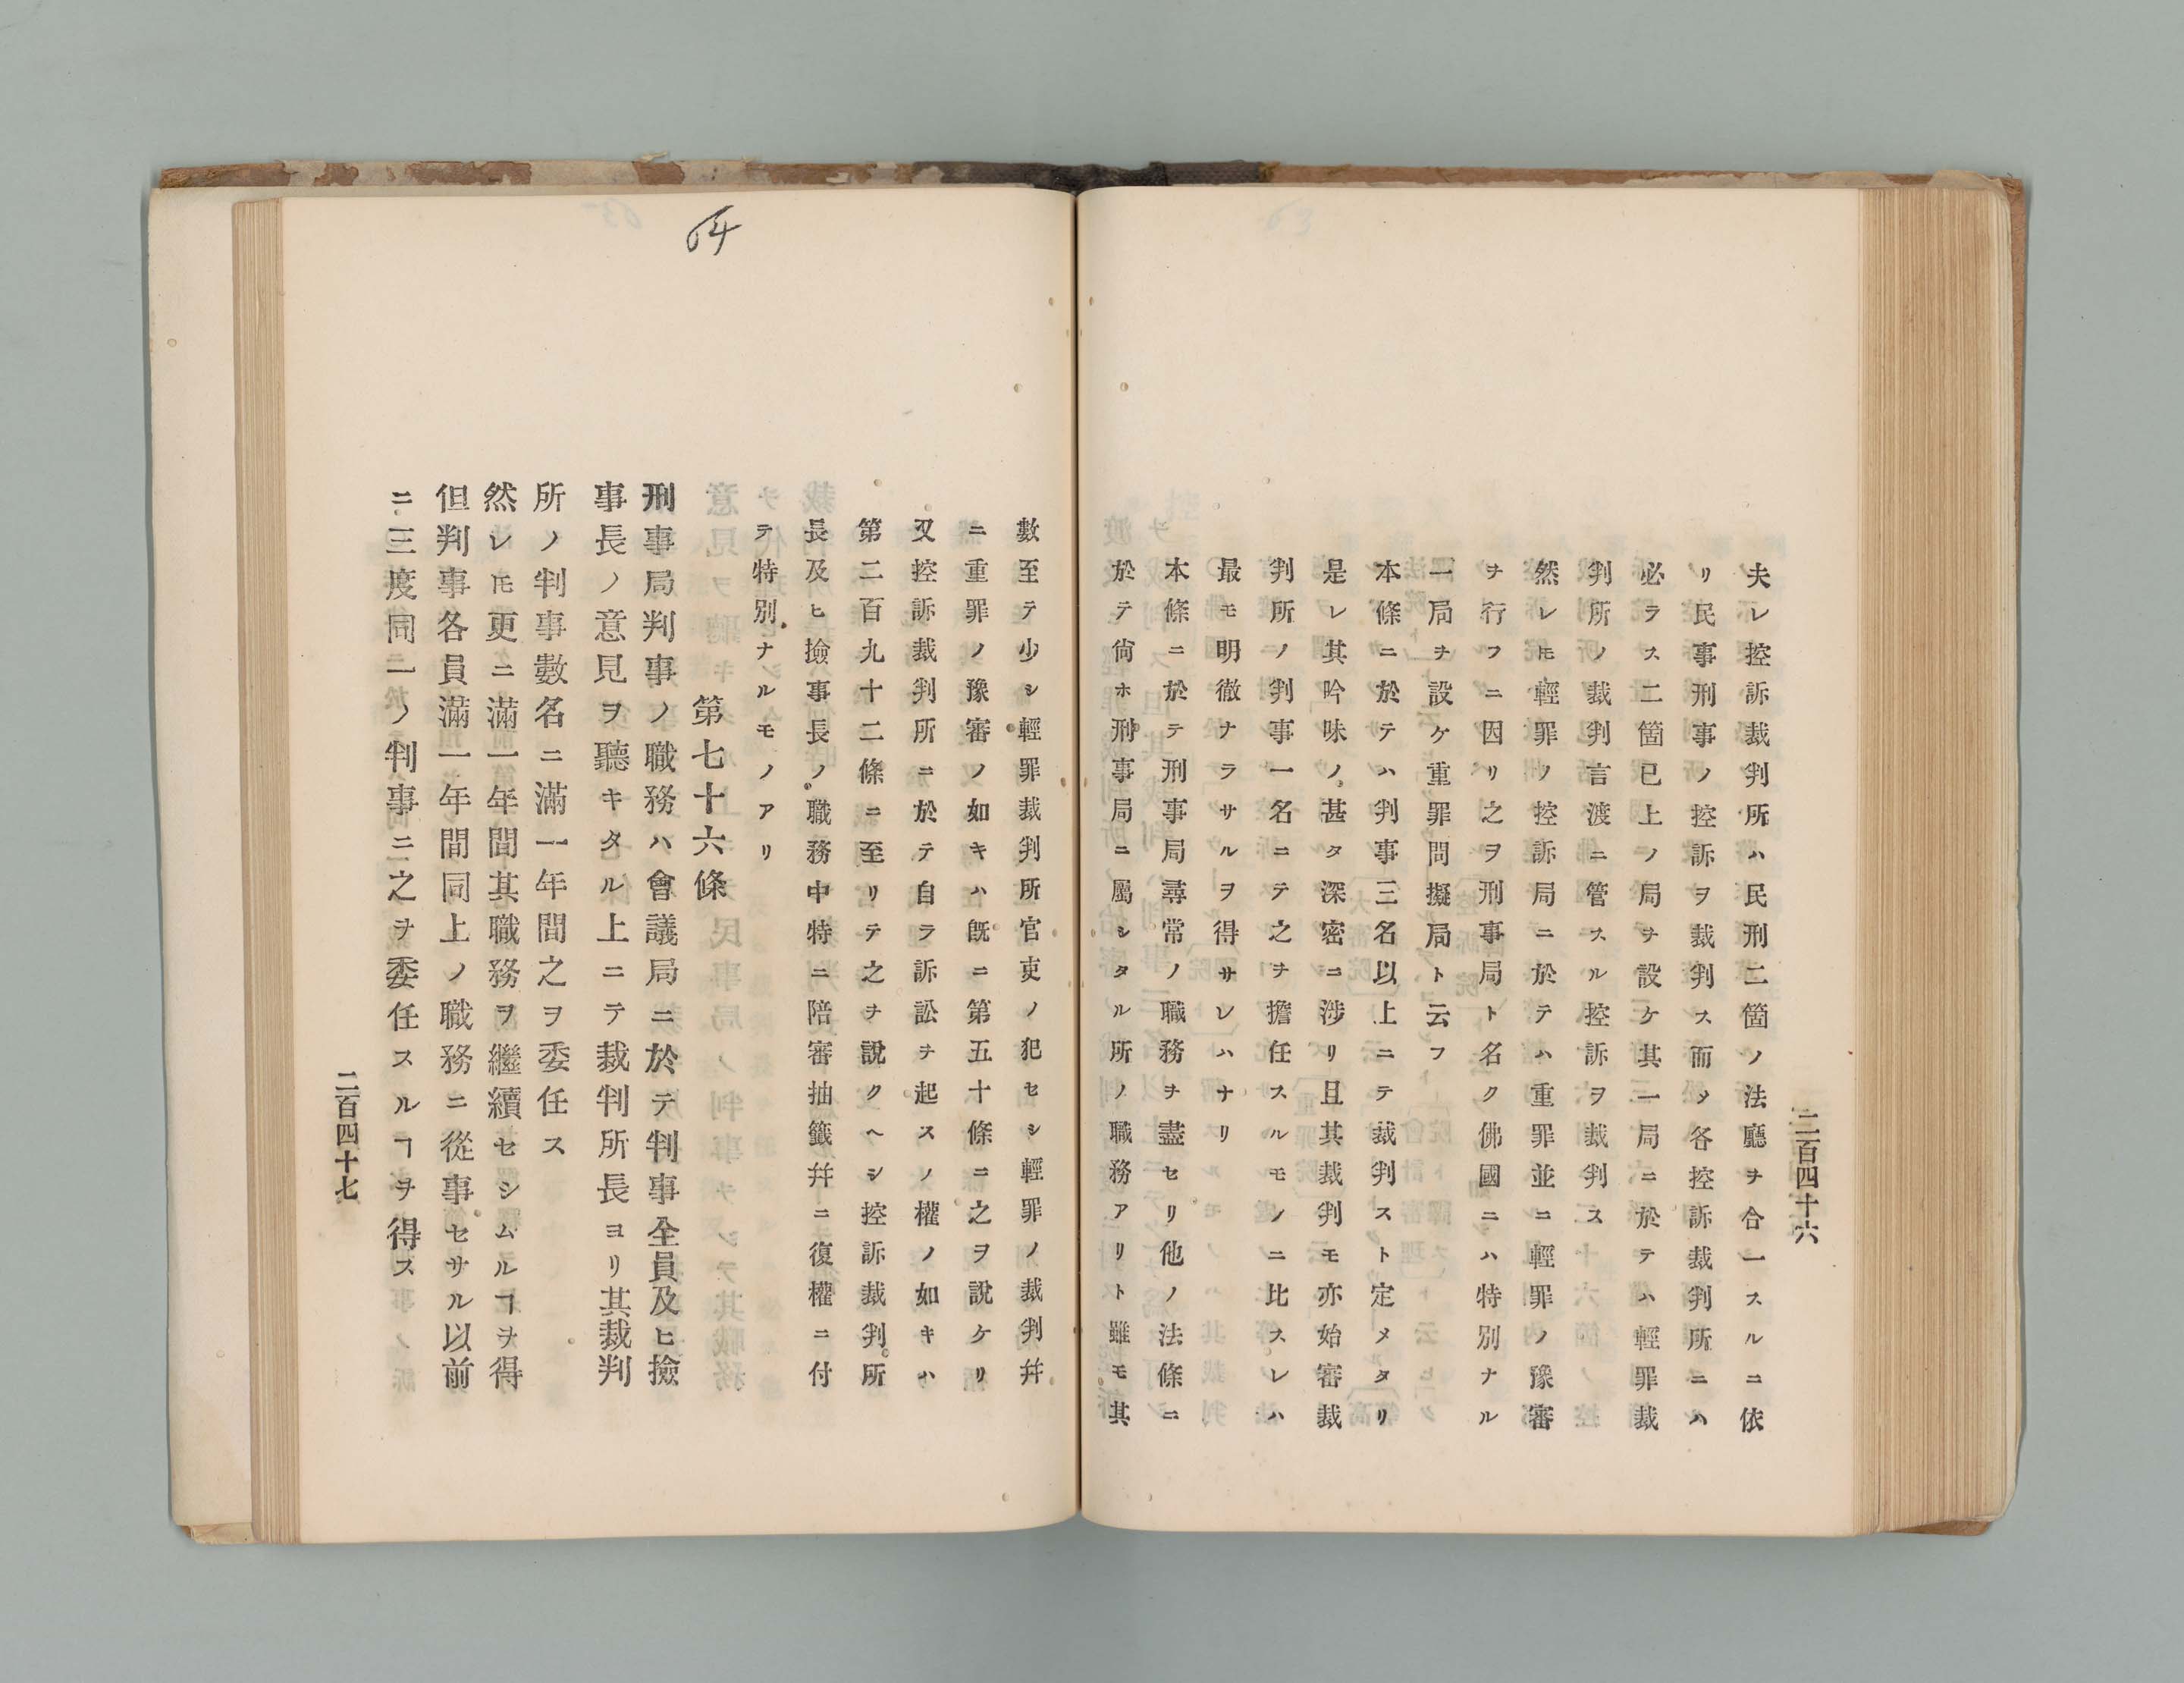 二百四十六
夫レ控訴裁判所ハ民刑二箇ノ法廳ヲ合一スルニ依
リ民事刑事ノ控訴ヲ裁判ス而メ各控訴裁判所ニハ
必ラス二箇已上ノ局ヲ設ケ其一局ニ於テハ輕罪裁
判所ノ裁判言渡ニ管スル控訴ヲ裁判ス
然レ𪜈輕罪ノ控訴局ニ於テハ重罪並ニ輕罪ノ豫審
ヲ行フニ因リ之ヲ刑事局ト名ク佛國ニハ特別ナル
一局ヲ設ケ重罪問擬局ト云フ
本條ニ於テハ判事三名以上ニテ裁判スト定メタリ
是レ其吟味ノ甚タ深密ニ涉リ且其裁判モ亦始審裁
判所ノ判事一名ニテ之ヲ擔任スルモノニ比スレハ
最モ明徹ナラサルヲ得サレハナリ
本條ニ於テ刑事局尋常ノ職務ヲ盡セリ他ノ法條ニ
於テ尙ホ刑事局ニ屬シタル所ノ職務アリト雖モ其
數至テ少シ輕罪裁判所官吏ノ犯セシ輕罪ノ裁判幷
ニ重罪ノ豫審ノ如キハ旣ニ第五十條ニ之ヲ說ケリ
又控訴裁判所ニ於テ自ラ訴訟ヲ起スノ權ノ如キハ
第二百九十二條ニ至リテ之ヲ說クヘシ控訴裁判所
長及ヒ撿事長ノ職務中特ニ陪審抽籤幷ニ復權ニ付
テ特別ナルモノアリ
64
第七十六條
刑事局判事ノ職務ハ會議局ニ於テ判事全員及ヒ撿
事長ノ意見ヲ聽キタル上ニテ裁判所長ヨリ其裁判
所ノ判事數名ニ滿一年間之ヲ委任ス
然レ𪜈更ニ滿一年間其職務ヲ繼續セシムルヿヲ得
但判事各員滿一年間同上ノ職務ニ從事セサル以前
ニ三度同一ノ判事ニ之ヲ委任スルヿヲ得ス
二百四十七